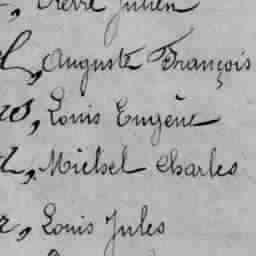 Pierre Julien
l, Auguste François
us, Louis Eugène
l, Michel Charles
r, Louis Jules